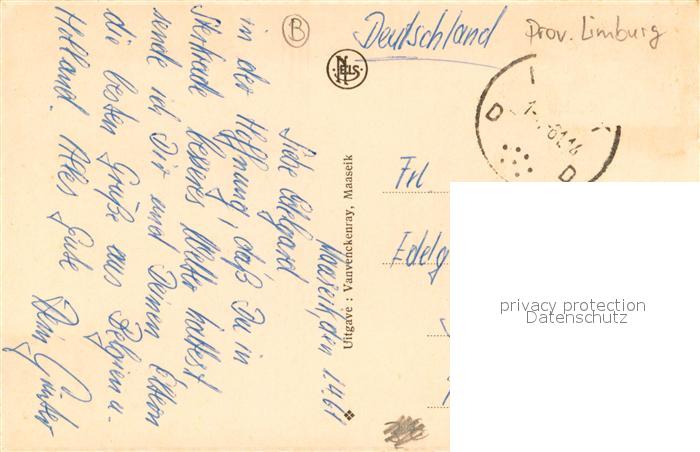 Maaseik, den 1.4.61
Liebe Edelgard
in der Hoffnung, daß Du in
Sterkrade besseres Wetter hattest
sende ich Dir und Deinen Eltern
die besten Grüße aus Belgien u.
Holland. Alles Gute
Dein Günter
Uitgave : Vanvenckenray, Maaseik
NELS
B
Deutschland
Prov. Limburg
D D
Frl.
Edelg
privacy protection
Datenschutz